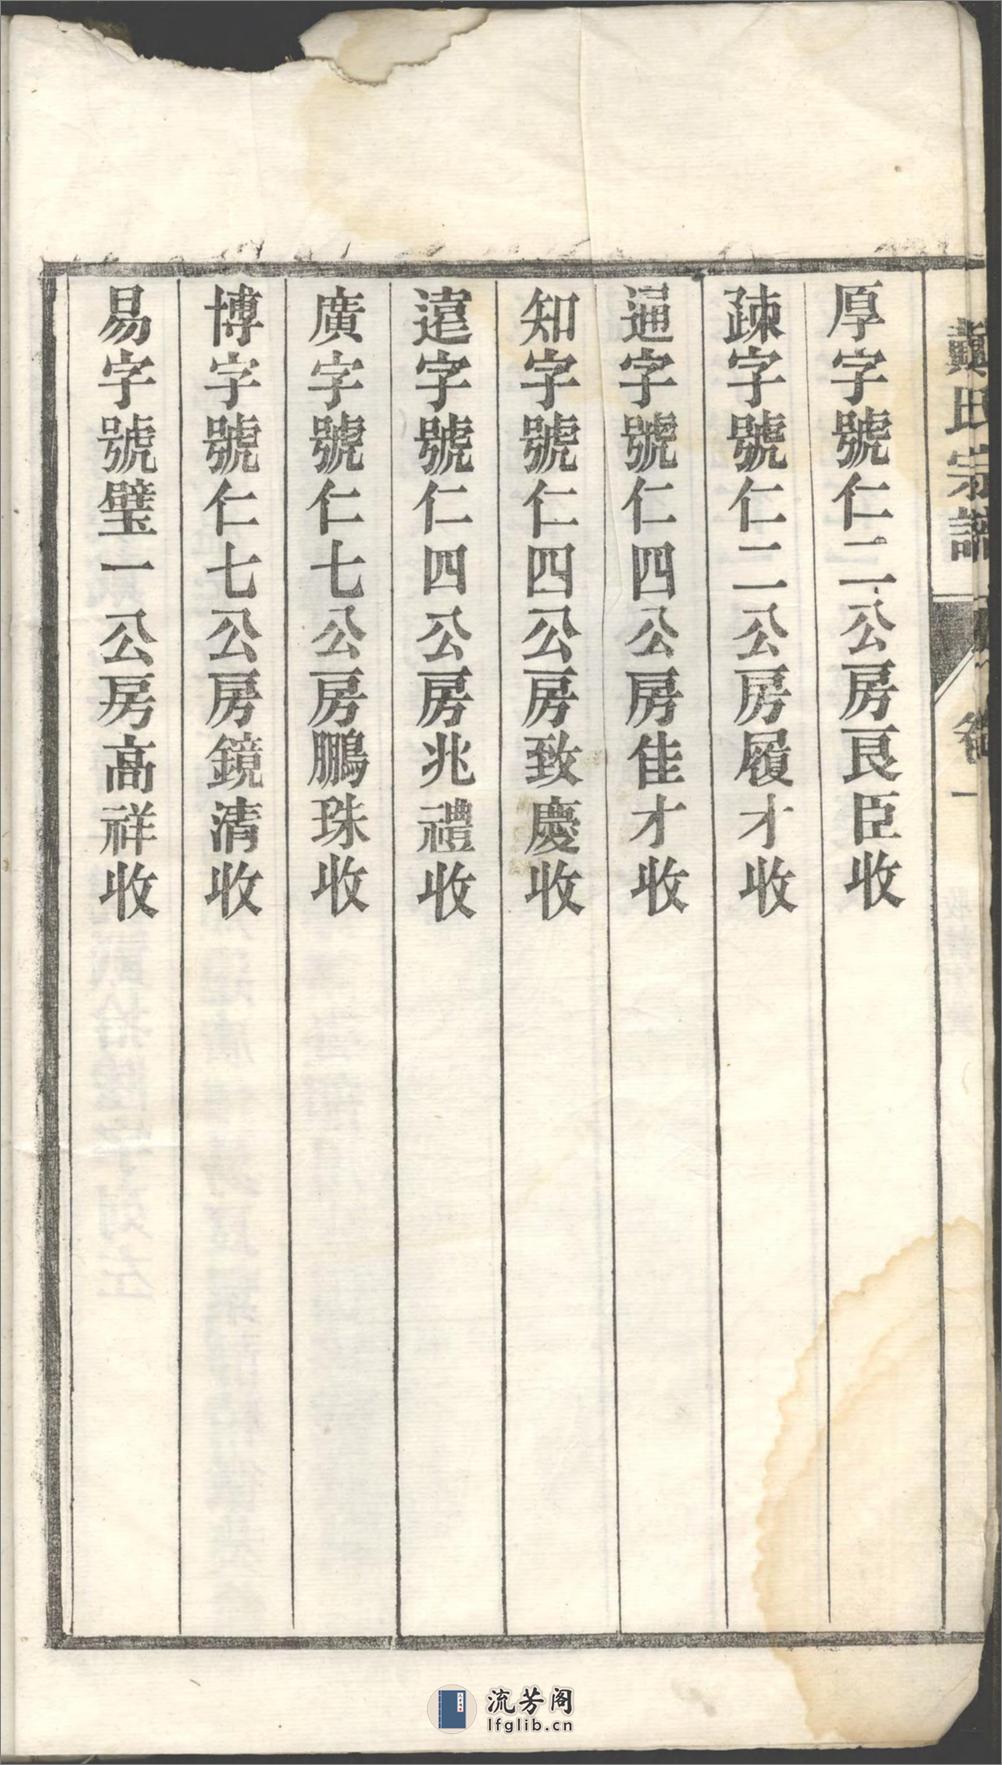 龔氏宗譜 卷一
厚字號仁二公房良臣收
疎字號仁二公房履才收
通字號仁四公房佳才收
知字號仁四公房致慶收
遠字號仁四公房兆禮收
廣字號仁七公房鵬珠收
博字號仁七公房鏡清收
易字號仁璧一公房高祥收
流芳阁
lfglib.cn